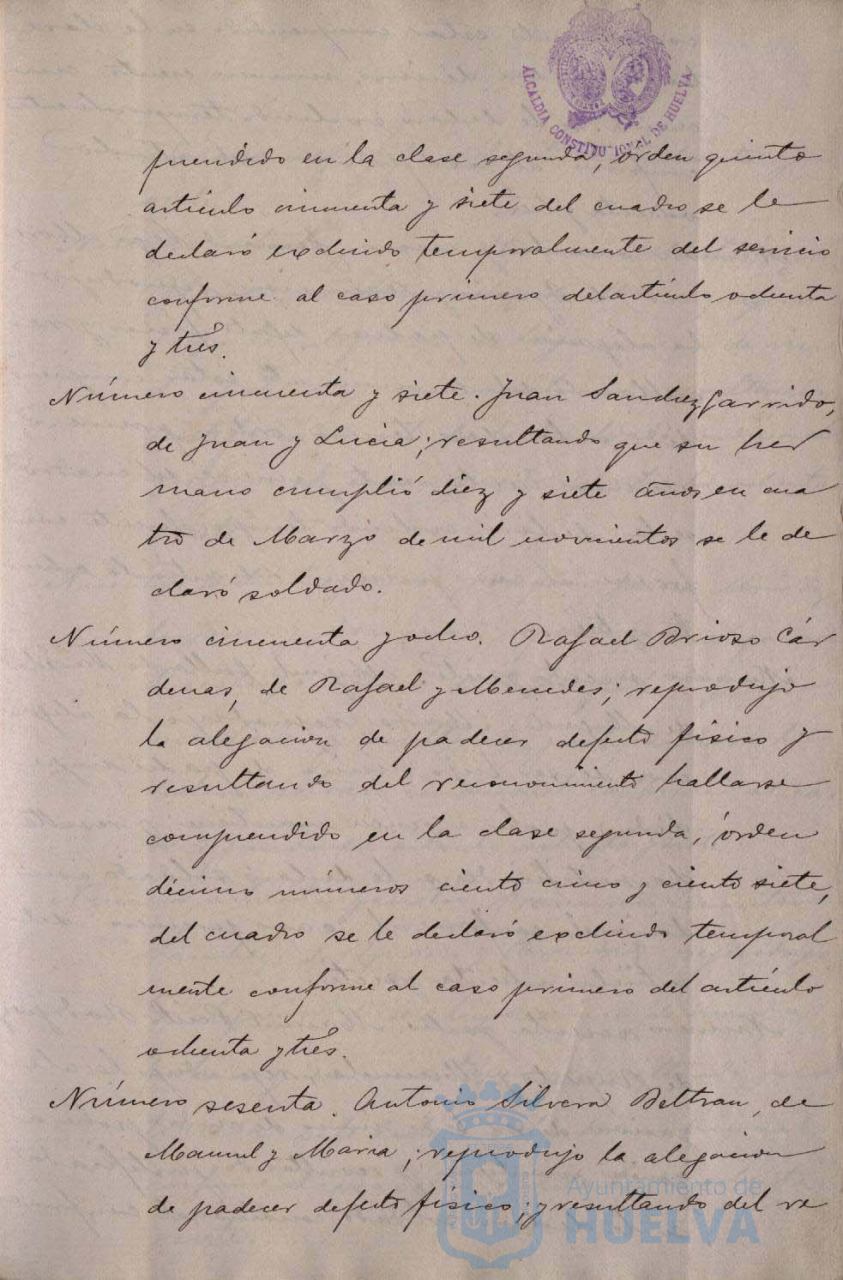 ALCALDIA CONSTITUCIONAL DE HUELVA
prendido en la clase segunda, orden quinto
artículo cincuenta y siete del cuadro se le
declaró excluido temporalmente del servicio
conforme al caso primero del artículo ochenta
y tres.
Número cincuenta y siete. Juan Sanchez Garrido,
de Juan y Lucia; resultando que su her
mano cumplió diez y siete años en cua
tro de Marzo de mil novecientos se le de
claró soldado.
Número cincuenta y ocho. Rafael Brioso Cár
denas, de Rafael y Mercedes; reprodujo
la alegacion de padecer defecto físico y
resultando del reconocimiento hallarse
comprendido en la clase segunda, órden
décimo números ciento cinco y ciento siete,
del cuadro se le declaró excluido temporal
mente conforme al caso primero del artículo
ochenta y tres.
Número sesenta. Antonio Silvera Beltran, de
Manuel y Maria; reprodujo la alegacion
de padecer defecto físico; y resultando del re
Ayuntamiento de
HUELVA